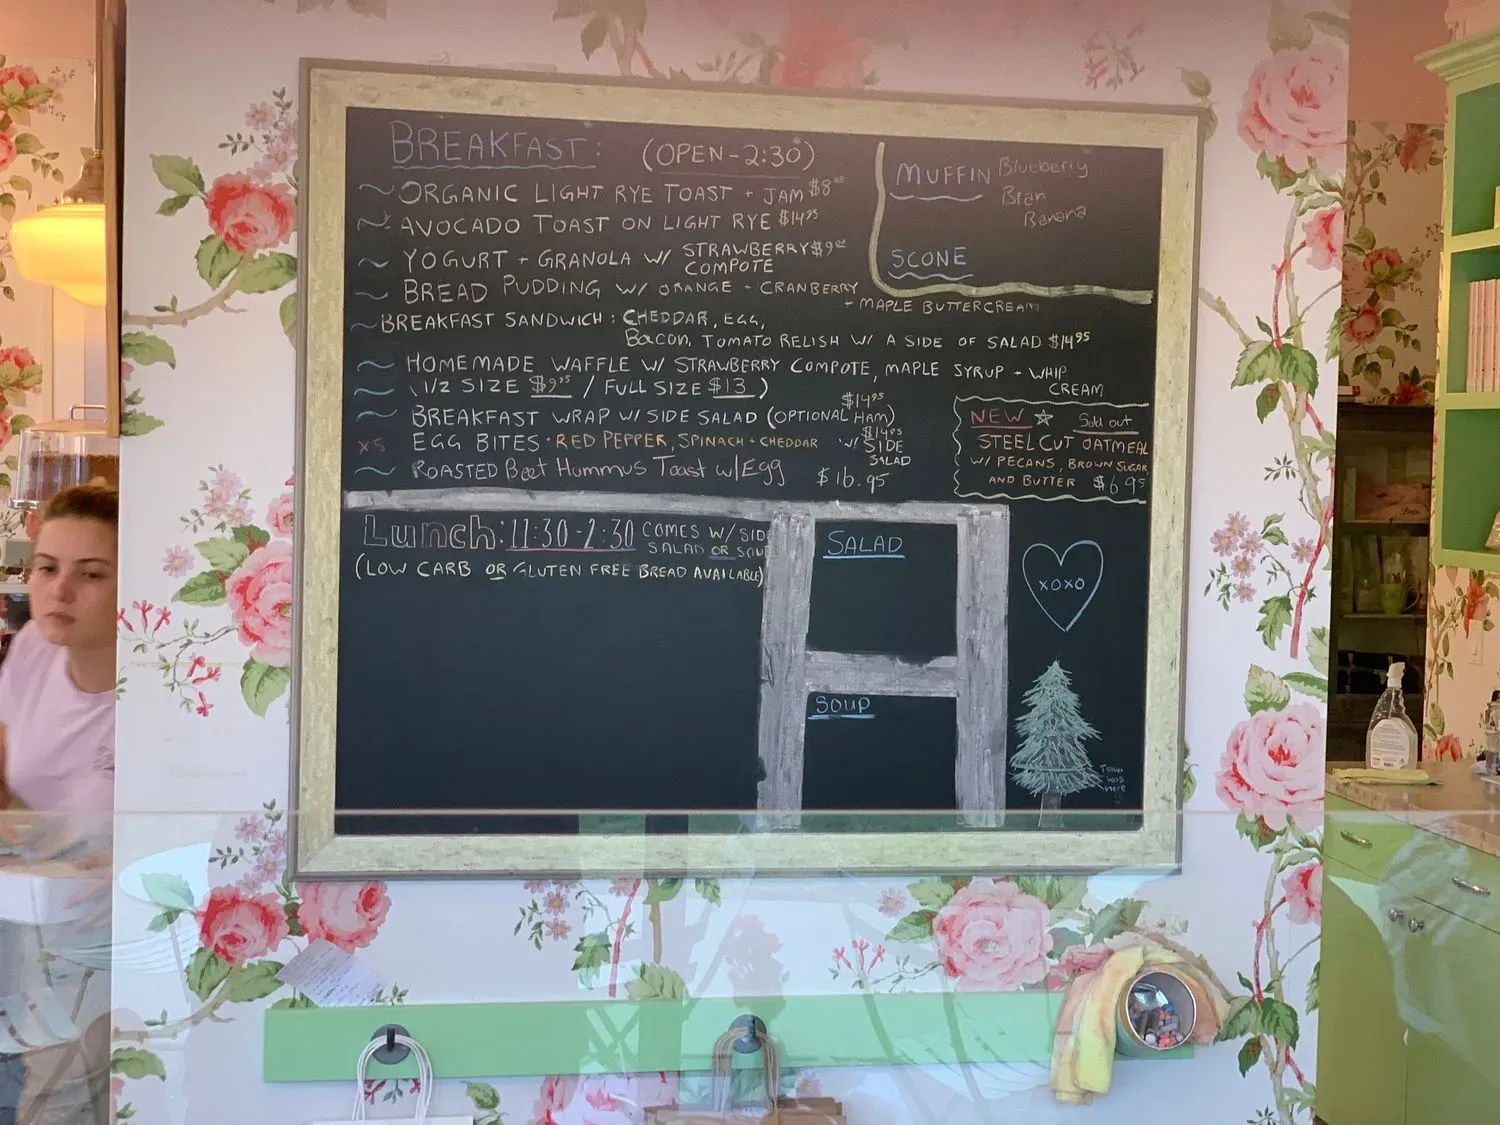 BREAKFAST: (OPEN-2:30)
~ ORGANIC LIGHT RYE TOAST + JAM $8
~ AVOCADO TOAST ON LIGHT RYE $14.95
~ YOGURT + GRANOLA W/ STRAWBERRY $9
COMPOTE
~ BREAD PUDDING W/ ORANGE - CRANBERRY
+ MAPLE BUTTERCREAM
~ BREAKFAST SANDWICH: CHEDDAR, EGG,
Bacon, TOMATO RELISH W/ A SIDE OF SALAD $14.95
~ HOMEMADE WAFFLE W/ STRAWBERRY COMPOTE, MAPLE SYRUP + WHIP
CREAM
~ (1/2 SIZE $9.95 / FULL SIZE $13)
~ BREAKFAST WRAP W/ SIDE SALAD (OPTIONAL HAM) $14.95
x5 EGG BITES - RED PEPPER, SPINACH + CHEDDAR W/ SIDE
SALAD
$14.95
~ ROASTED Beet Hummus Toast w/ Egg $16.95
MUFFIN Blueberry
Bran
Banana
SCONE
NEW ☆ Sold out
STEEL CUT OATMEAL
W/ PECANS, BROWN SUGAR
AND BUTTER $6.95
Lunch: 11:30-2:30 COMES W/ SID
SALAD OR SOU
(LOW CARB OR GLUTEN FREE BREAD AVAILABLE)
SALAD
SOUP
XOXO
was